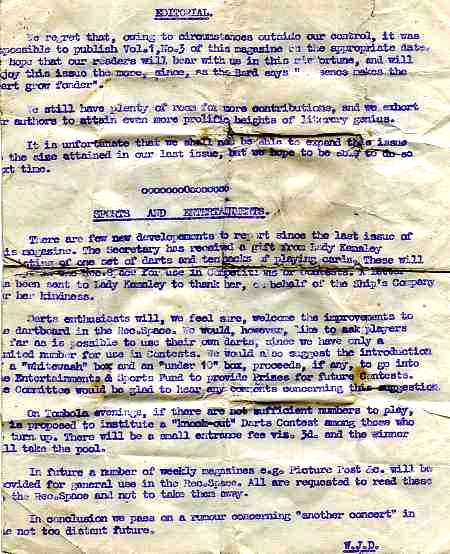 EDITORIAL.
We regret that, owing to circumstances outside our control, it was
possible to publish Vol.1,No.3 of this magazine on the appropriate date.
hope that our readers will bear with us in this misfortune, and will
joy this issue the more, since, as the Bard says " sence makes the
art grow fonder".
We still have plenty of room for more contributions, and we exhort
r authors to attain even more prolific heights of literary genius.
It is unfortunate that we shall not be able to expand this issue
the size attained in our last issue, but we hope to be able to do so
xt time.
ooooooooOoooooooo
SPORTS AND ENTERTAINMENTS.
There are few new developments to report since the last issue of
is magazine. The Secretary has received a gift from Lady Kemsley
of one set of darts and ten packs of playing cards. These will
the Rec.Space for use in Competitions or Contests. A letter
s been sent to Lady Kemsley to thank her, on behalf of the Ship's Company
r her kindness.
Darts enthusiasts will, we feel sure, welcome the improvements to
e dartboard in the Rec.Space. We would, however, like to ask players
far as is possible to use their own darts, since we have only a
mited number for use in Contests. We would also suggest the introduction
a "Whitewash" box and an "under 10" box, proceeds, if any, to go into
e Entertainments & Sports Fund to provide Prizes for future Contests.
e Committee would be glad to hear any comments concerning this suggestion.
On Tombola evenings, if there are not sufficient numbers to play,
is proposed to institute a "knock-out" Darts Contest among those who
turn up. There will be a small entrance fee viz. 3d. and the winner
ll take the pool.
In future a number of weekly magazines e.g. Picture Post &c. will be
ovided for general use in the Rec.Space. All are requested to read these
the Rec.Space and not to take them away.
In conclusion we pass on a rumour concerning "another concert" in
e not too distant future.
W.J.D.